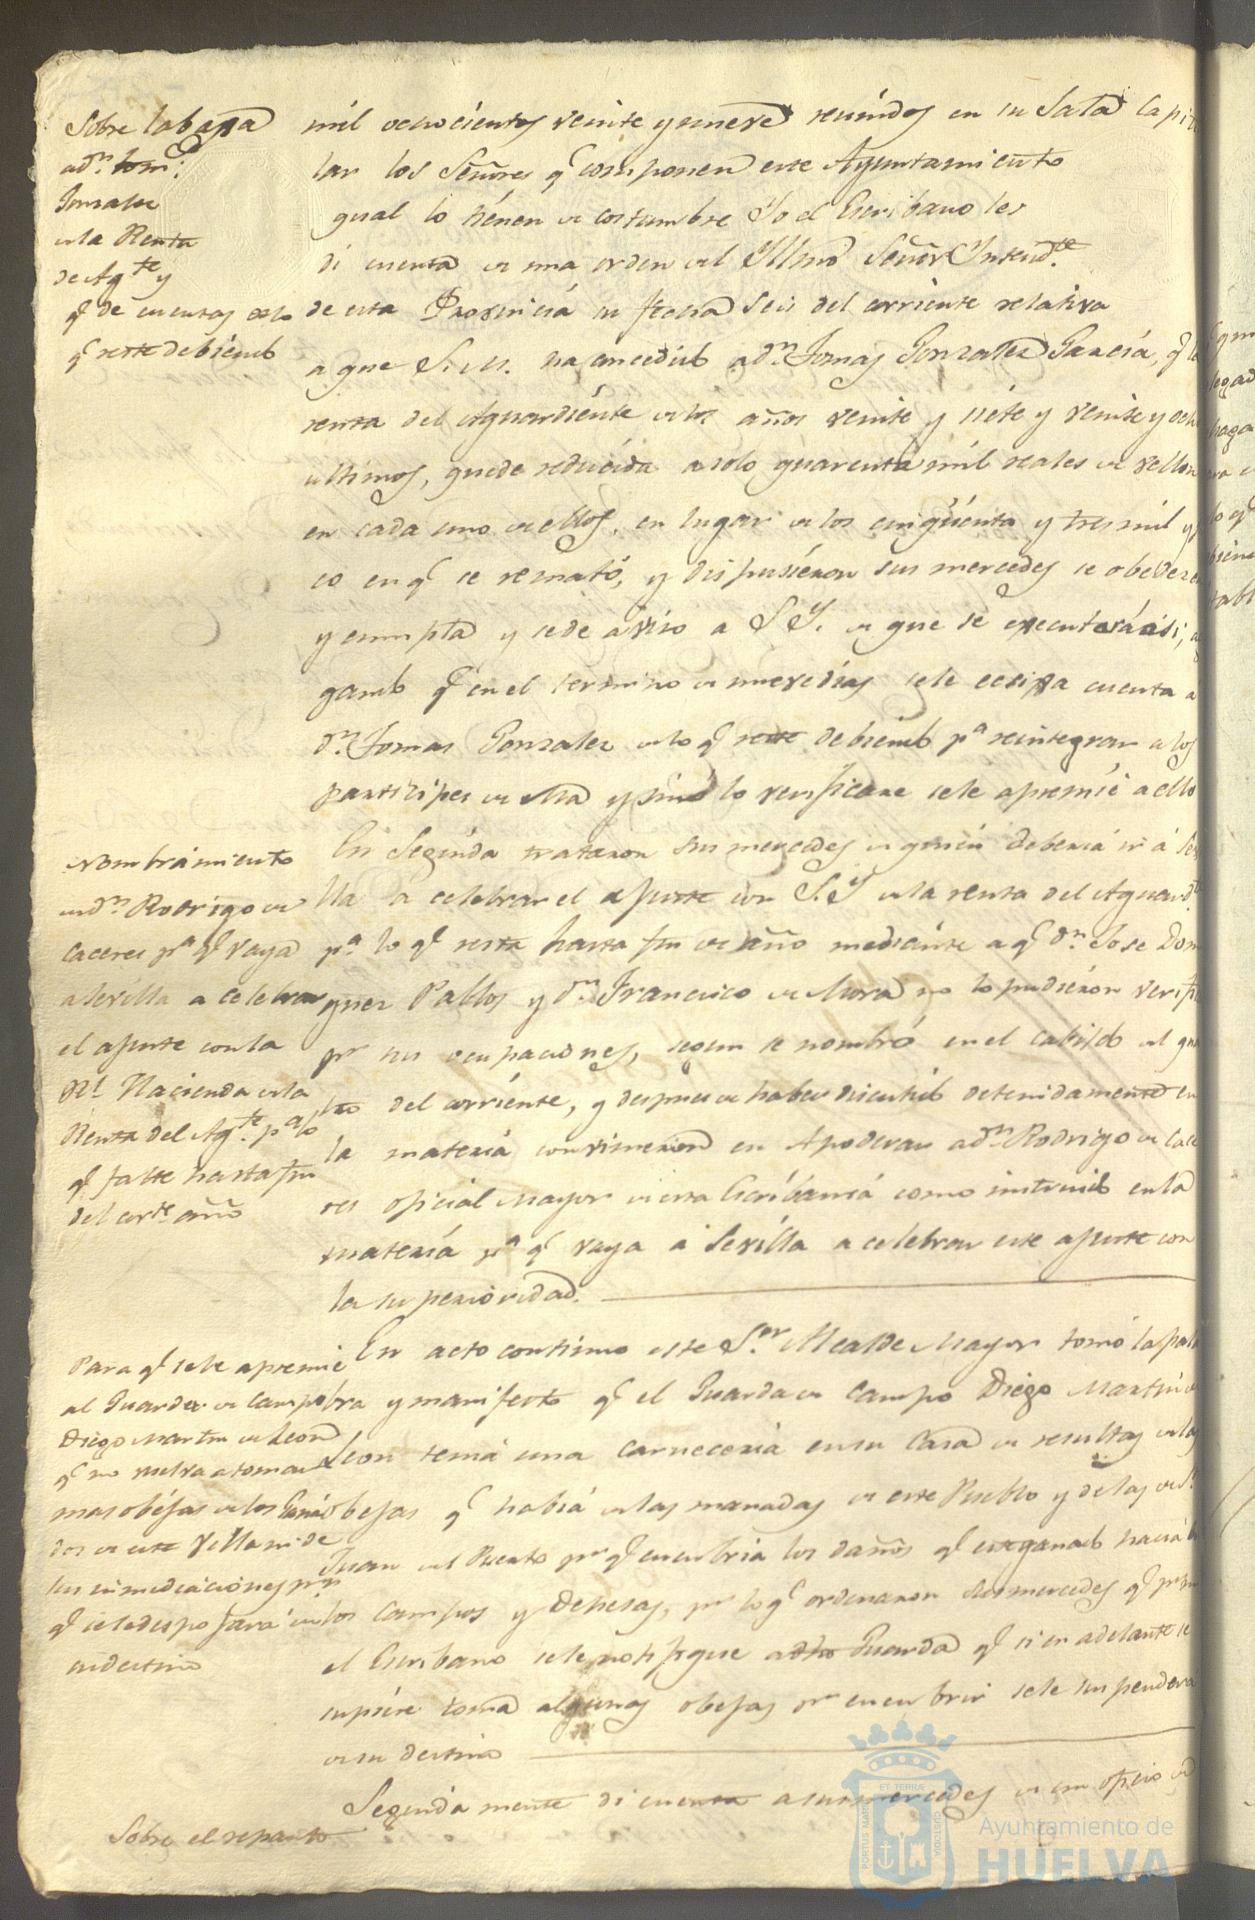 Sobre la baxa
a dn. tom.s
Gonzalez
en la Renta
de Agte. y
q.e de cuentas de lo
q.e reste debiendo
mil ochocientos veinte y nueve reunidos en su Sala Capitu
lar los Señores q.e componen este Ayuntamiento
qual lo tienen de costumbre Yo el Escribano les
di cuenta de una orden del Yllmo Señor Yntendte.
de esta Provincia su fecha Seis del corriente relativa
a que S. M. ha concedido a dn. Tomas Gonzalez Garcia, q.e la
renta del Aguardiente de los años veinte y siete y veinte y ocho
ultimos, quede reducida a solo quarenta mil reales de vellon
en cada uno de ellos, en lugar de los cinqüenta y tres mil y
co en q.e se remató, y dispusieron sus mercedes se obedezca
y cumpla y se de aviso a S. Y. de que se executará asi,
gando q.e en el termino de nueve dias se le ecsija cuenta a
dn. Tomas Gonzalez de lo q.e reste debiendo pa. reintegrar a los
participes de ella y sinó lo verificare se le apremie a ello
Nombramiento
en dn. Rodrigo de
Caceres pa. q.e vaya
a Sevilla a celebrar
el ajuste con la
Rl. Hacienda en la
Renta del Agte. pa. lo
q.e falte hasta fin
del corte. año
En Seguida trataron sus mercedes de quien deberia ir á Sevi
lla a celebrar el ajuste con S. Y. de la renta del Aguardte.
pa. lo q.e resta hasta fin de año mediante a q.e dn. Jose Domin
guez Pablos y dn. Francisco de Mora no lo pudieron verifi
pr. sus ocupaciones, segun se nombró en el cabildo del qua
tro del corriente, y despues de haber discutido detenidamente en
la materia convinieron en Apoderar a dn. Rodrigo de Cace
res oficial Mayor de esta Escribania como instruido en la
materia pa. q.e vaya a Sevilla a celebrar este ajuste con
la superioridad.
Para q.e se le apremie
al Guarda de campo
Diego Martin de Leon
q.e no vuelva a tomar
mas obejas de los Gana
dos de esta Villa ni de
sus inmediaciones pr.
q.e se le despojará de
su destino
En acto continuo este Sor. Alcalde Mayor tomó la pala
bra y manifesto q.e el Guarda de campo Diego Martin de
Leon tenia una carneceria en su Casa de resultas de las
obejas q.e habia de las manadas de este Pueblo y de las de Sn.
Juan del Puerto pr. q.e encubria los daños q.e el ganado hacia en
los campos y Dehesas, pr. lo q.e ordenaron sus mercedes q.e pr. mi
el Escribano se le notifique a dho Guarda q.e si en adelante se
supiere toma algunas obejas pr. encubrir se le suspendera
de su destino
Sobre el reparto
Segundamente di cuenta a sus mercedes de un oficio de
PORTUS MARIS ET TERRAE CUSTODIA
Ayuntamiento de
HUELVA